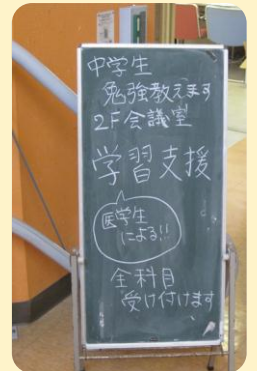 中学生
勉強教えます
2F会議室
学習支援
医学生
による!!
全科目
受け付けます